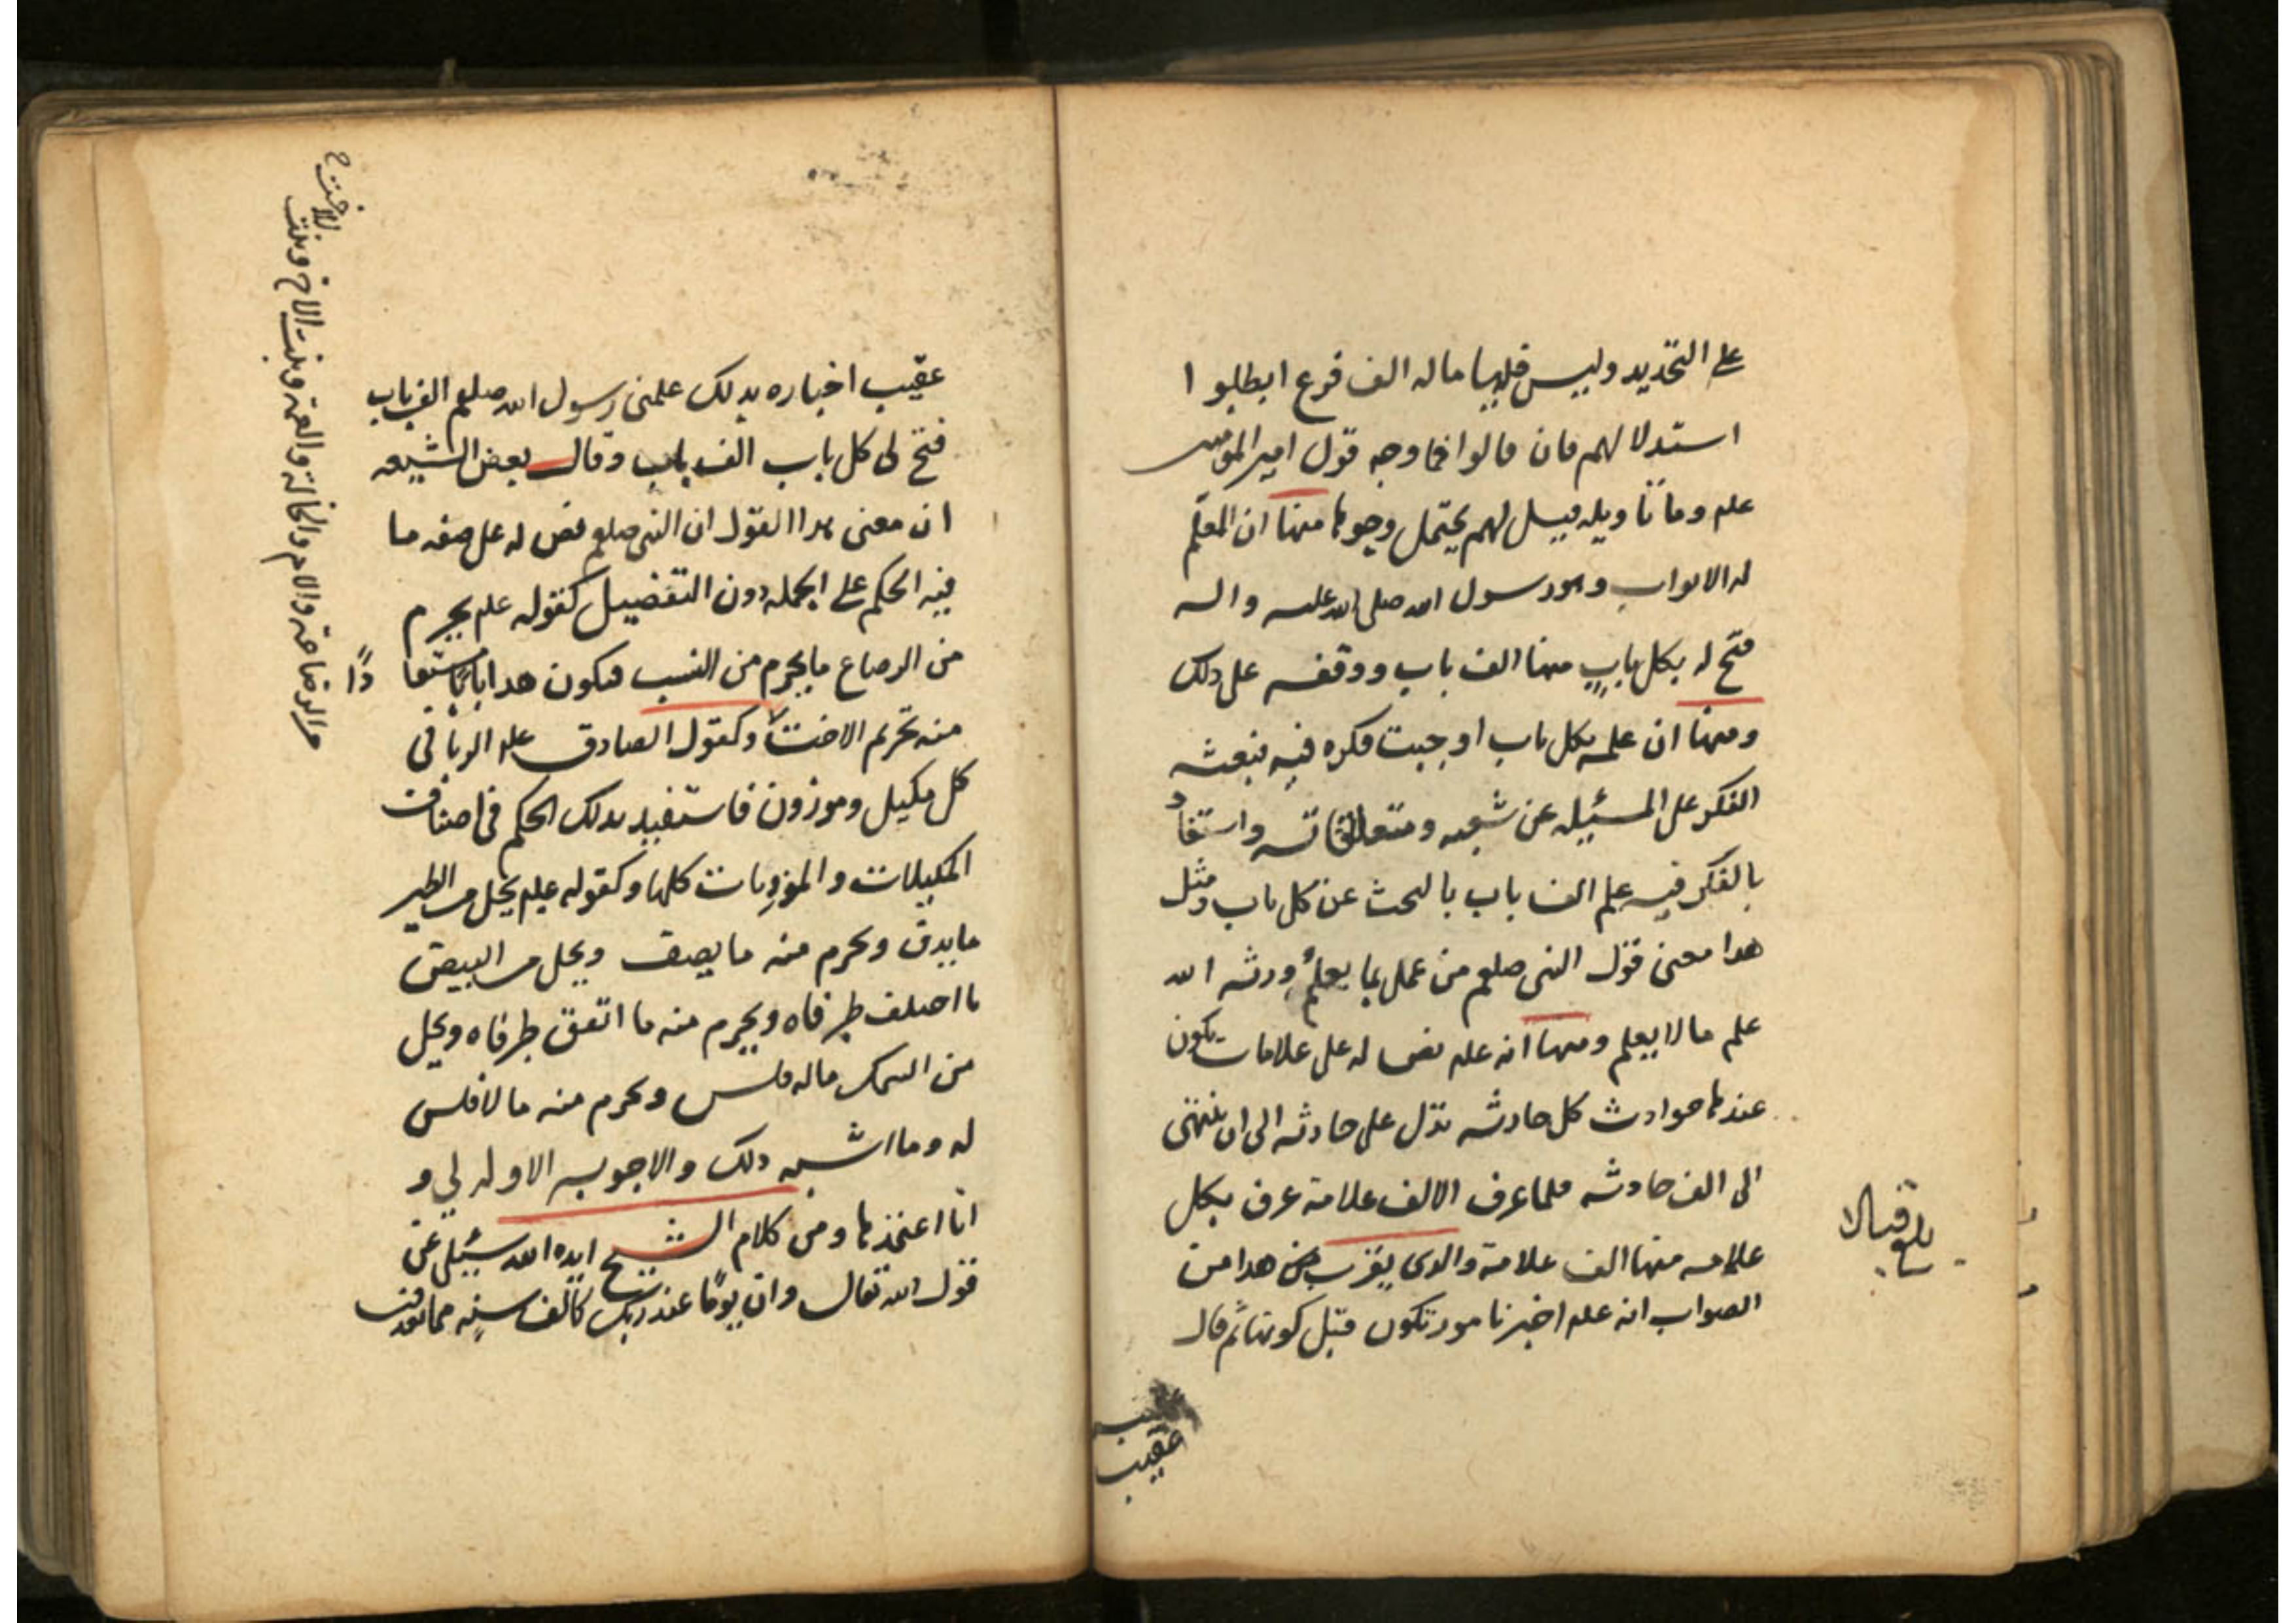 على التحديد وليس فيها ماله الف فرع ابطلوا
استدلالهم فان قالوا فما وجه قول امير المومنين
علم وما تاويله قيل لهم يحتمل وجوها منها ان المعلم
له الابواب وهو رسول الله صلى الله عليه واله
فتح له بكل باب منها الف باب ووقفه على ذلك
ومنها ان علمه بكل باب اوجبت فكره فيه فبعثه
الفكر على المسئيله عن شعبه ومتعلقاته واستفاد
بالفكر فيه علم الف باب بالبحث عن كل باب ومثل
هذا معنى قول النبى صلعم من عمل بما يعلم ورثه الله
علم ما لا يعلم ومنها انه علم نص له على علامات تكون
عندها حوادث كل حادثه تدل على حادثه الى ان تنتهى
الى الف حادثه فلما عرف الالف علامة عرف بكل
علامه منها الف علامة والذى يقرب من هذا من
الصواب انه علم اخبرنا بامور تكون قبل كونها ثم قال
عقيب
بلغ قبالا
عقيب اخباره بذلك علمنى رسول الله صلعم الف باب
فتح لى كل باب الف باب وقال بعض الشيعه
ان معنى هذا القول ان النبى صلعم نص له على صفه ما
فيه الحكم على الجمله دون التفضيل كقوله علم يحرم
من الرضاع ما يحرم من النسب فكون هذا بابا مستفا دًا
منه تحريم الاخت وكقول الصادق علم الربا فى
كل مكيل وموزون فاستفيد بذلك الحكم فى اصناف
المكيلات والموزونات كلها وكقوله علم يحل من الطير
ما يدف ويحرم منه ما يصف ويحل من البيض
ما اختلف طرفاه ويحرم منه ما اتفق طرفاه ويحل
من السمك ماله فلس ويحرم منه ما لا فلس
له وما اشبه ذلك والاجوبه الاوله لي و
انا اعتمدها ومن كلام الشيخ ايده الله سئيل عن
قول الله تعالى وان يومًا عند ربك كالف سنه مما تعدون
من الرضاعة والام والخالة والعمة وبنت الاخ وبنت
الاخت